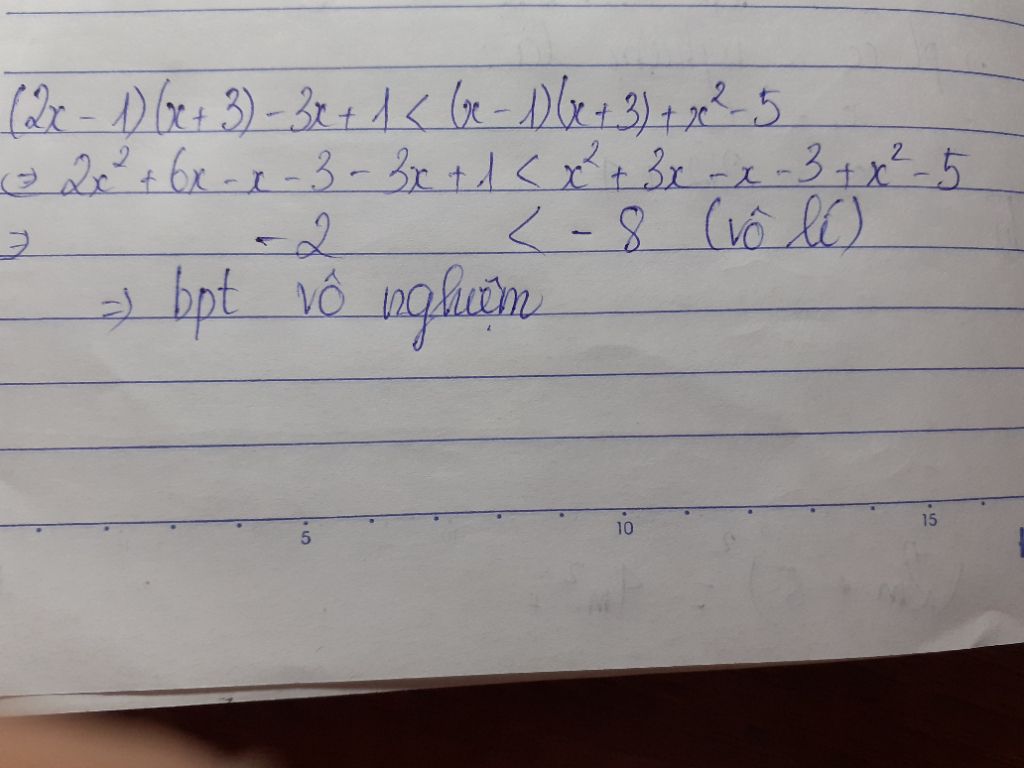 (2x - 1)(x + 3) - 3x + 1 < (x - 1)(x + 3) + x² - 5
⇔ 2x² + 6x - x - 3 - 3x + 1 < x² + 3x - x - 3 + x² - 5
⇒ - 2 < - 8 (vô lí)
⇒ bpt vô nghiệm
5 10 15